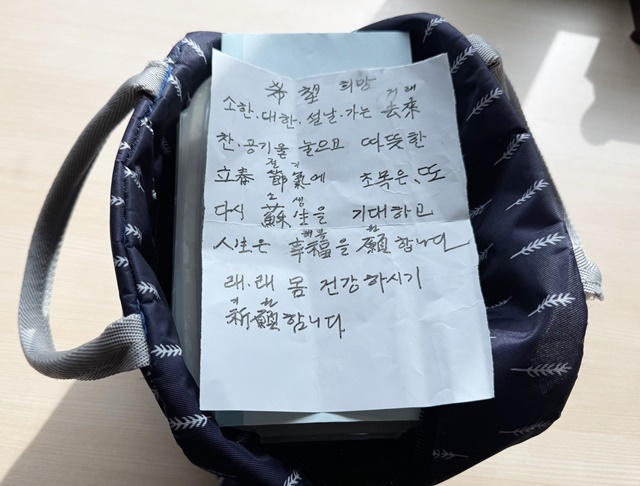 希望 희망
소한.대한.설날.가는 去來 거래
찬.공기을 놓으고 따뜻한
立春 節氣에 절기 초목은, 또
다시 蘇生을 소생 기대하고
人生은 幸福을 행복 願합니다 원
래.래 몸 건강하시기
祈願합니다 기원